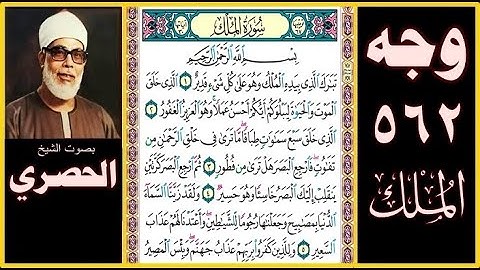 وجه
٥٦٢
الملك
بصوت الشيخ
الحصري
سُورَةُ المُلْكِ
بِسْمِ اللَّهِ الرَّحْمَٰنِ الرَّحِيمِ
تَبَارَكَ الَّذِي بِيَدِهِ الْمُلْكُ وَهُوَ عَلَىٰ كُلِّ شَيْءٍ قَدِيرٌ ١ الَّذِي خَلَقَ
الْمَوْتَ وَالْحَيَاةَ لِيَبْلُوَكُمْ أَيُّكُمْ أَحْسَنُ عَمَلًا وَهُوَ الْعَزِيزُ الْغَفُورُ ٢
الَّذِي خَلَقَ سَبْعَ سَمَاوَاتٍ طِبَاقًا مَا تَرَىٰ فِي خَلْقِ الرَّحْمَٰنِ مِن
تَفَاوُتٍ فَارْجِعِ الْبَصَرَ هَلْ تَرَىٰ مِن فُطُورٍ ٣ ثُمَّ ارْجِعِ الْبَصَرَ كَرَّتَيْنِ
يَنقَلِبْ إِلَيْكَ الْبَصَرُ خَاسِئًا وَهُوَ حَسِيرٌ ٤ وَلَقَدْ زَيَّنَّا السَّمَاءَ
الدُّنْيَا بِمَصَابِيحَ وَجَعَلْنَاهَا رُجُومًا لِّلشَّيَاطِينِ وَأَعْتَدْنَا لَهُمْ عَذَابَ
السَّعِيرِ ٥ وَلِلَّذِينَ كَفَرُوا بِرَبِّهِمْ عَذَابُ جَهَنَّمَ وَبِئْسَ الْمَصِيرُ